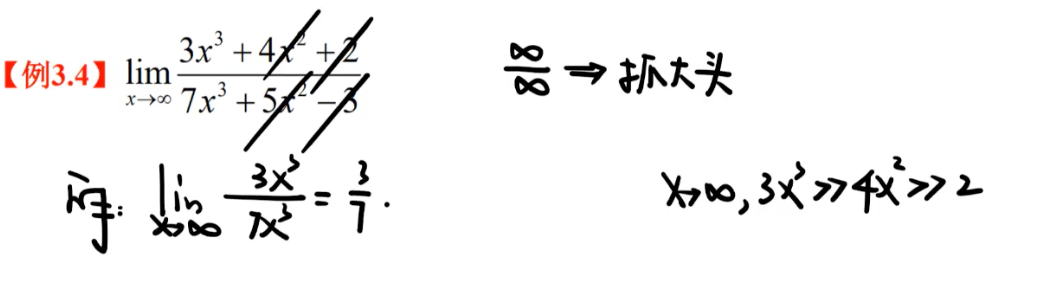 【例3.4】 lim x→∞ (3x³ + 4x² + 2)/(7x³ + 5x² − 3)
∞/∞ ⇒ 抓大头
原式: lim x→∞ 3x³/7x³ = 3/7.
x→∞, 3x³ ≫ 4x² ≫ 2